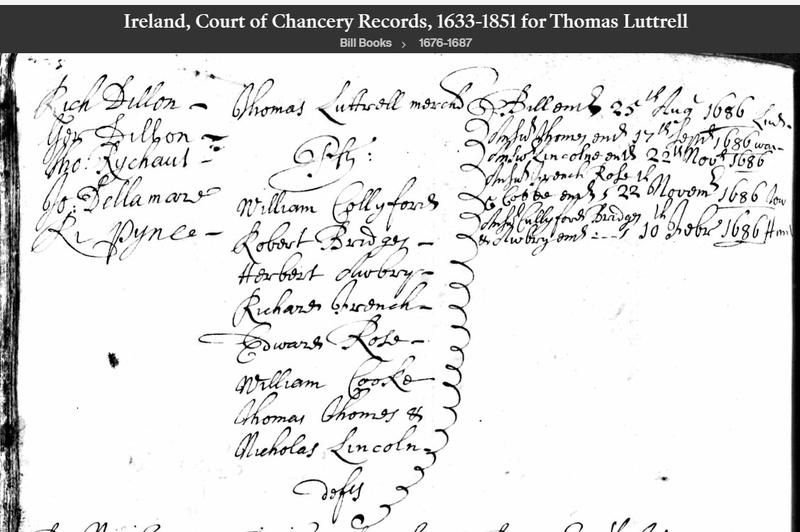 Ireland, Court of Chancery Records, 1633-1851 for Thomas Luttrell
Bill Books › 1676-1687
Rich Dillon
Ger Dillon
Tho: Rychaut
Jo: Dellamare
Ri Pynce
Thomas Luttrell merchd
Plt:
William Collyford
Robert Bridges
Herbert Awbry
Richard French
Edward Rose
William Cooke
Thomas Thomes &
Nicholas Lincoln
defts
Bill end 25th Aug 1686
Answ Thomes end 17th Sept 1686
Answ Lincolne end 22th Novr 1686
Answ French Rose
& Cooke end 22 Novem 1686
Answ Cullyford Bridges
& Awbry end 10th Febr 1686